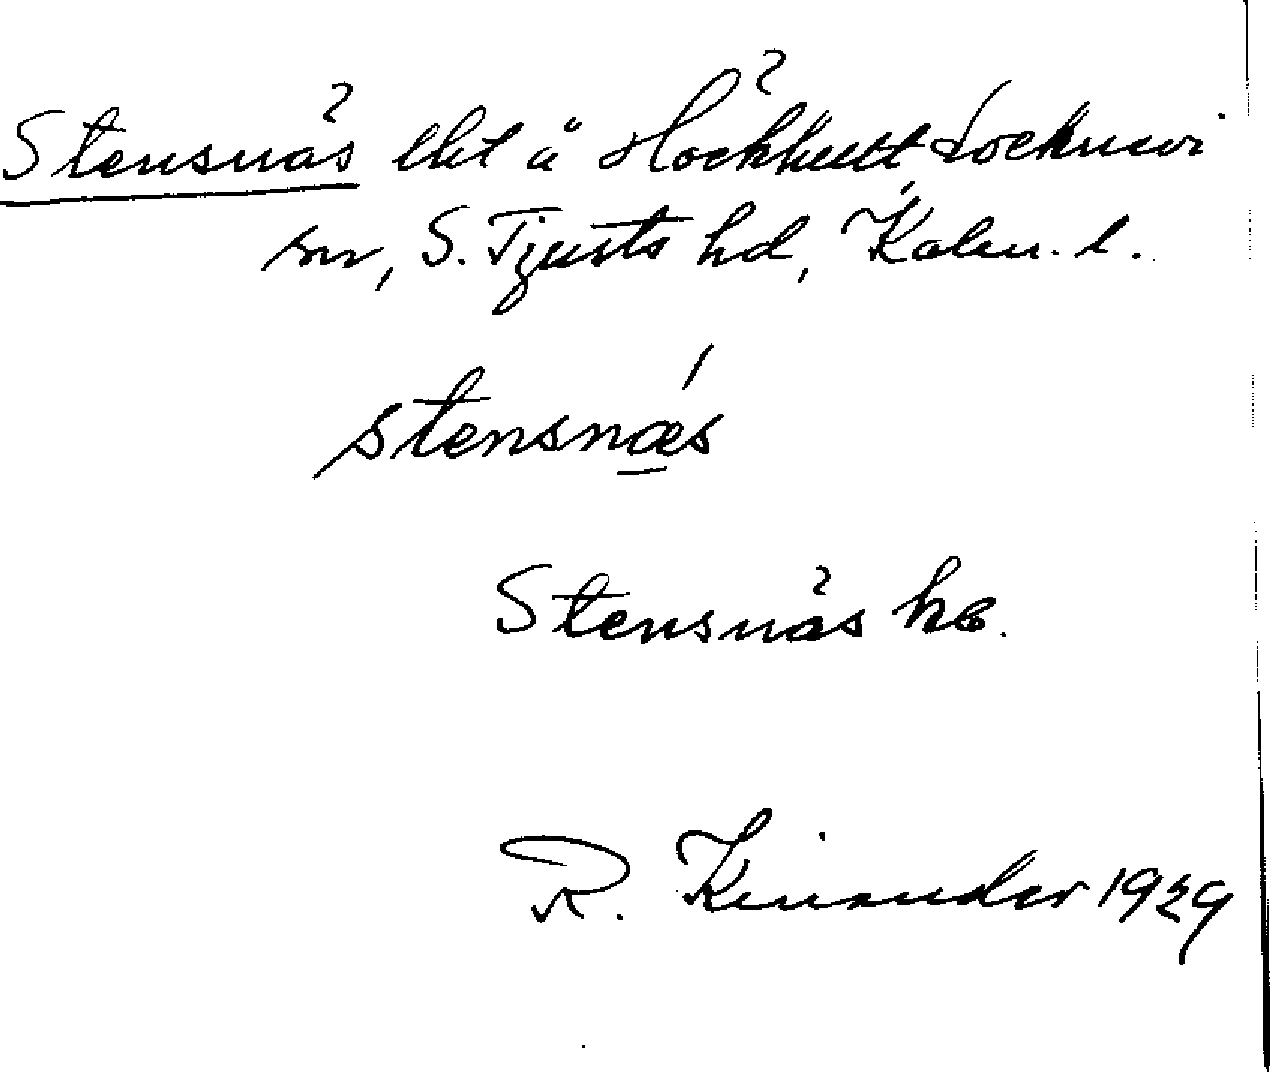 Stensnäs lht å Höckhult, Locknevi
sn, S. Tjusts hd, Kalm. l.
stensnæs
Stensnäs hb.
R. Kinander 1929